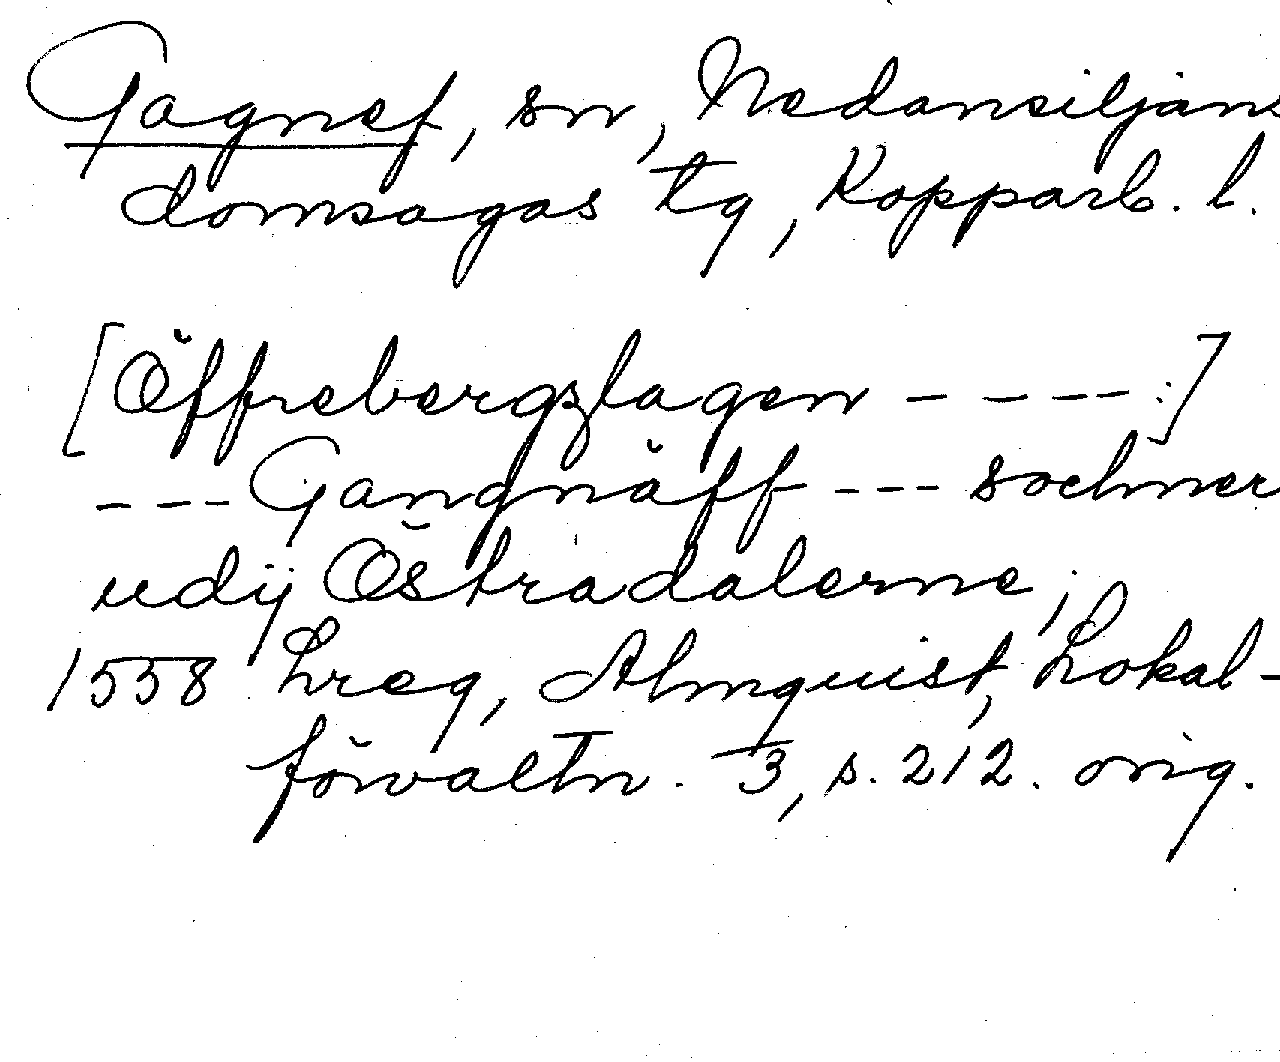 Gagnef, sn, Nedansiljans
domsagas tg, Kopparb. l.
[Öffrebergzlagen - - - - :]
- - - Gangnäff - - - sochner
udij Östradalerne,
1558 Lreg, Almquist, Lokal-
förvaltn. 3, s. 212. orig.